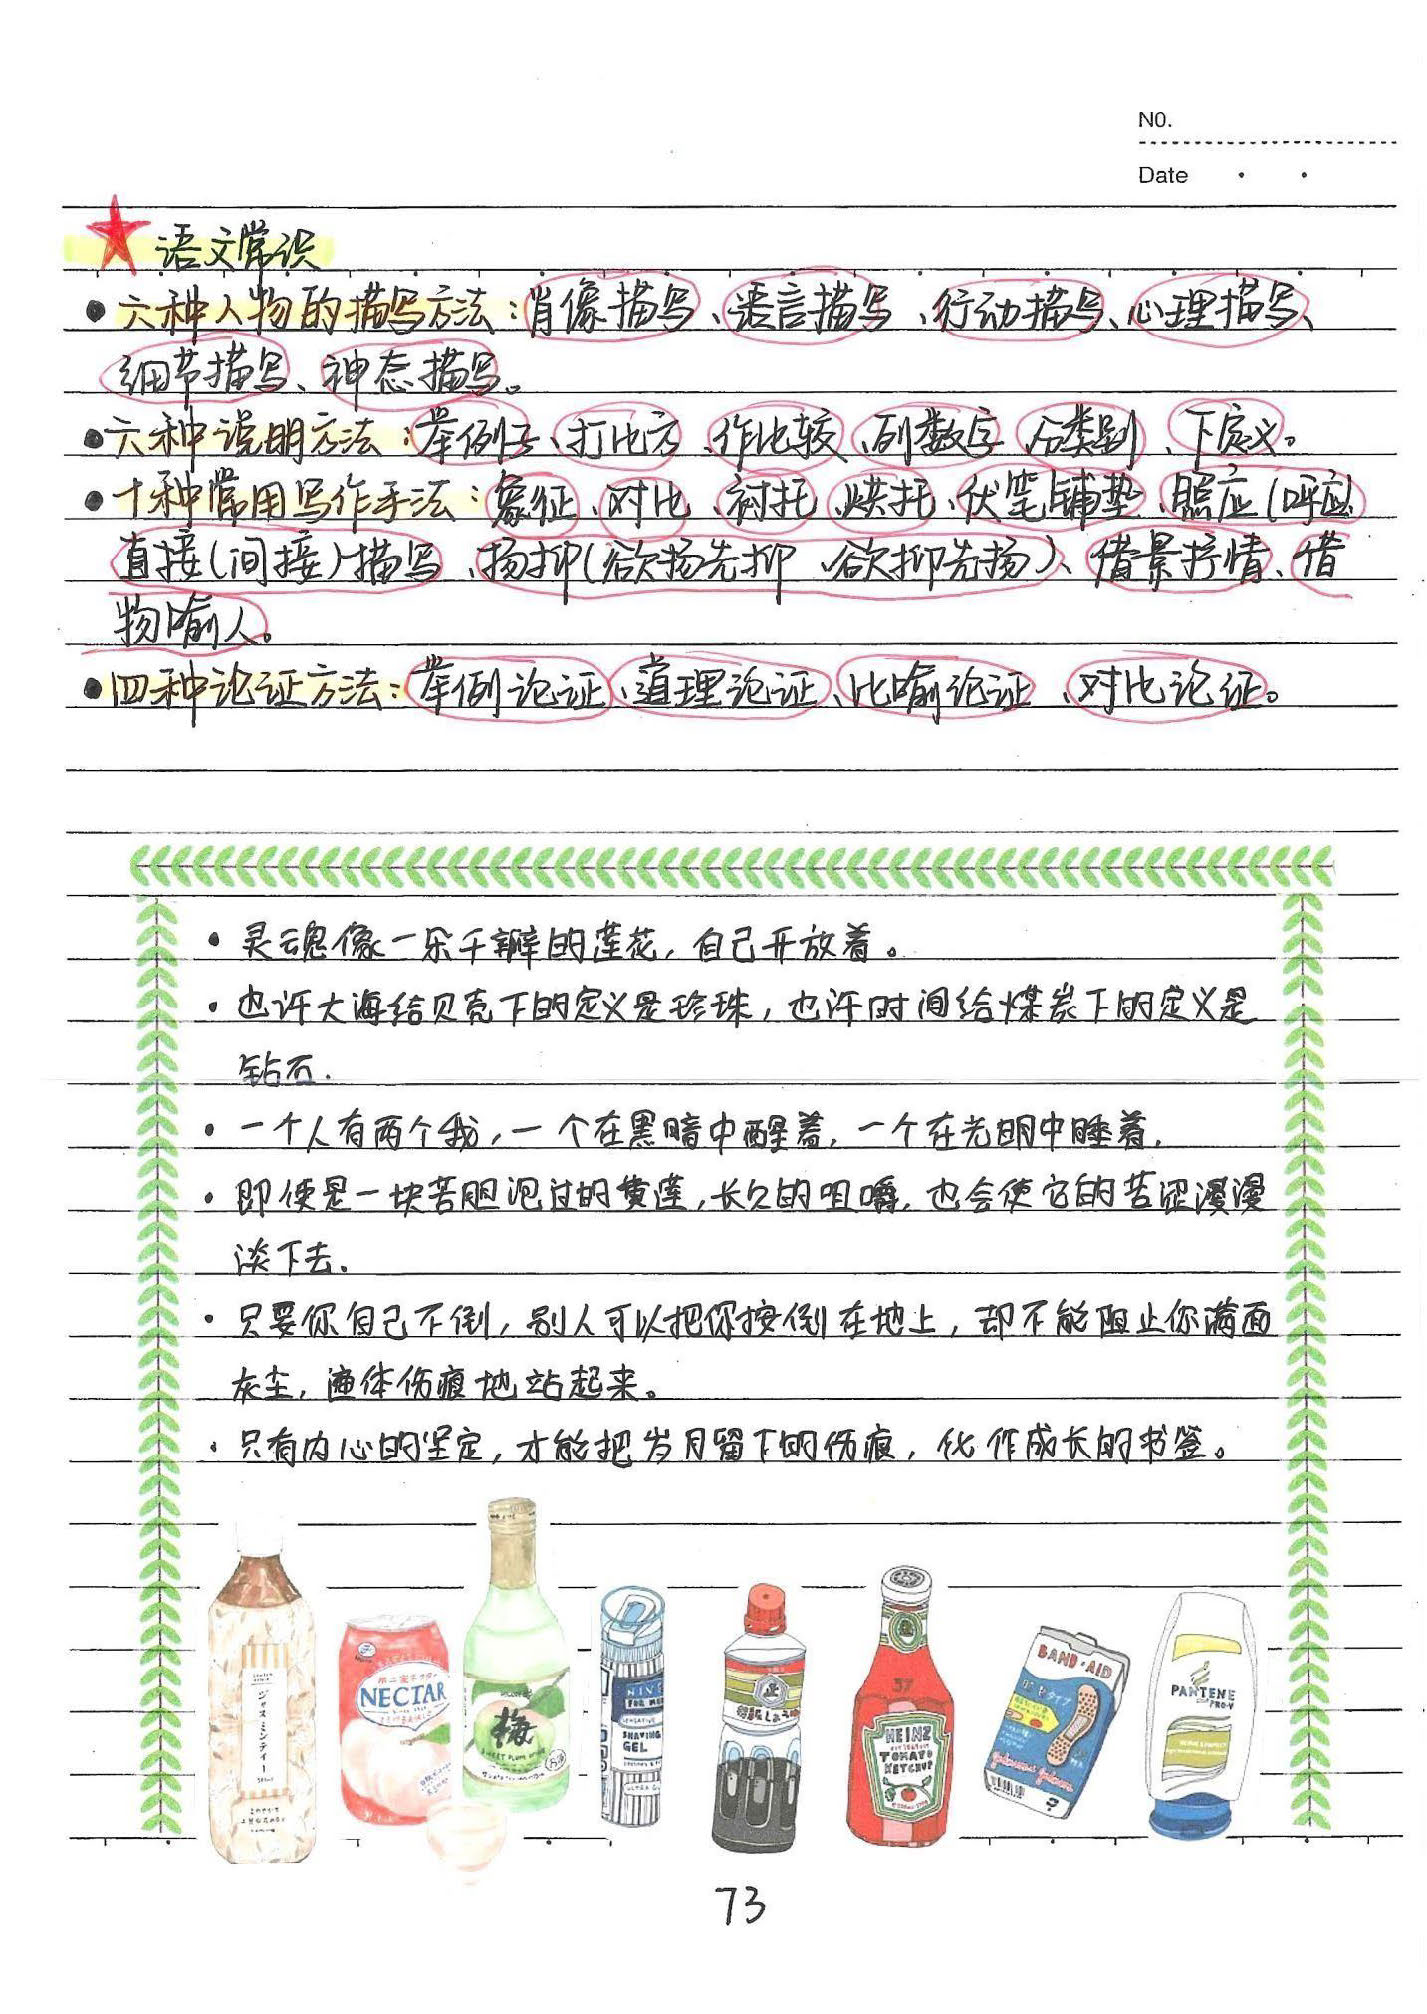 NO.
Date
语文常识
●六种人物的描写方法：肖像描写、语言描写、行动描写、心理描写、
细节描写、神态描写。
●六种说明方法：举例子、打比方、作比较、列数字、分类别、下定义。
●十种常用写作手法：象征、对比、衬托、烘托、伏笔铺垫、照应（呼应）
直接（间接）描写、扬抑（欲扬先抑、欲抑先扬）、借景抒情、借
物喻人。
●四种论证方法：举例论证、道理论证、比喻论证、对比论证。
·灵魂像一朵千瓣的莲花，自己开放着。
·也许大海给贝壳下的定义是珍珠，也许时间给煤炭下的定义是
钻石.
·一个人有两个我，一个在黑暗中醒着，一个在光明中睡着.
·即使是一块苦胆泡过的黄莲，长久的咀嚼，也会使它的苦涩漫漫
淡下去.
·只要你自己不倒，别人可以把你按倒在地上，却不能阻止你满面
灰尘，遍体伤痕地站起来。
·只有内心的坚定，才能把岁月留下的伤痕，化作成长的书签。
ジャスミンティー
NECTAR
梅
SHAVING
GEL
57
HEINZ
TOMATO
KETCHUP
BAND-AID
PANTENE
PRO-V
73